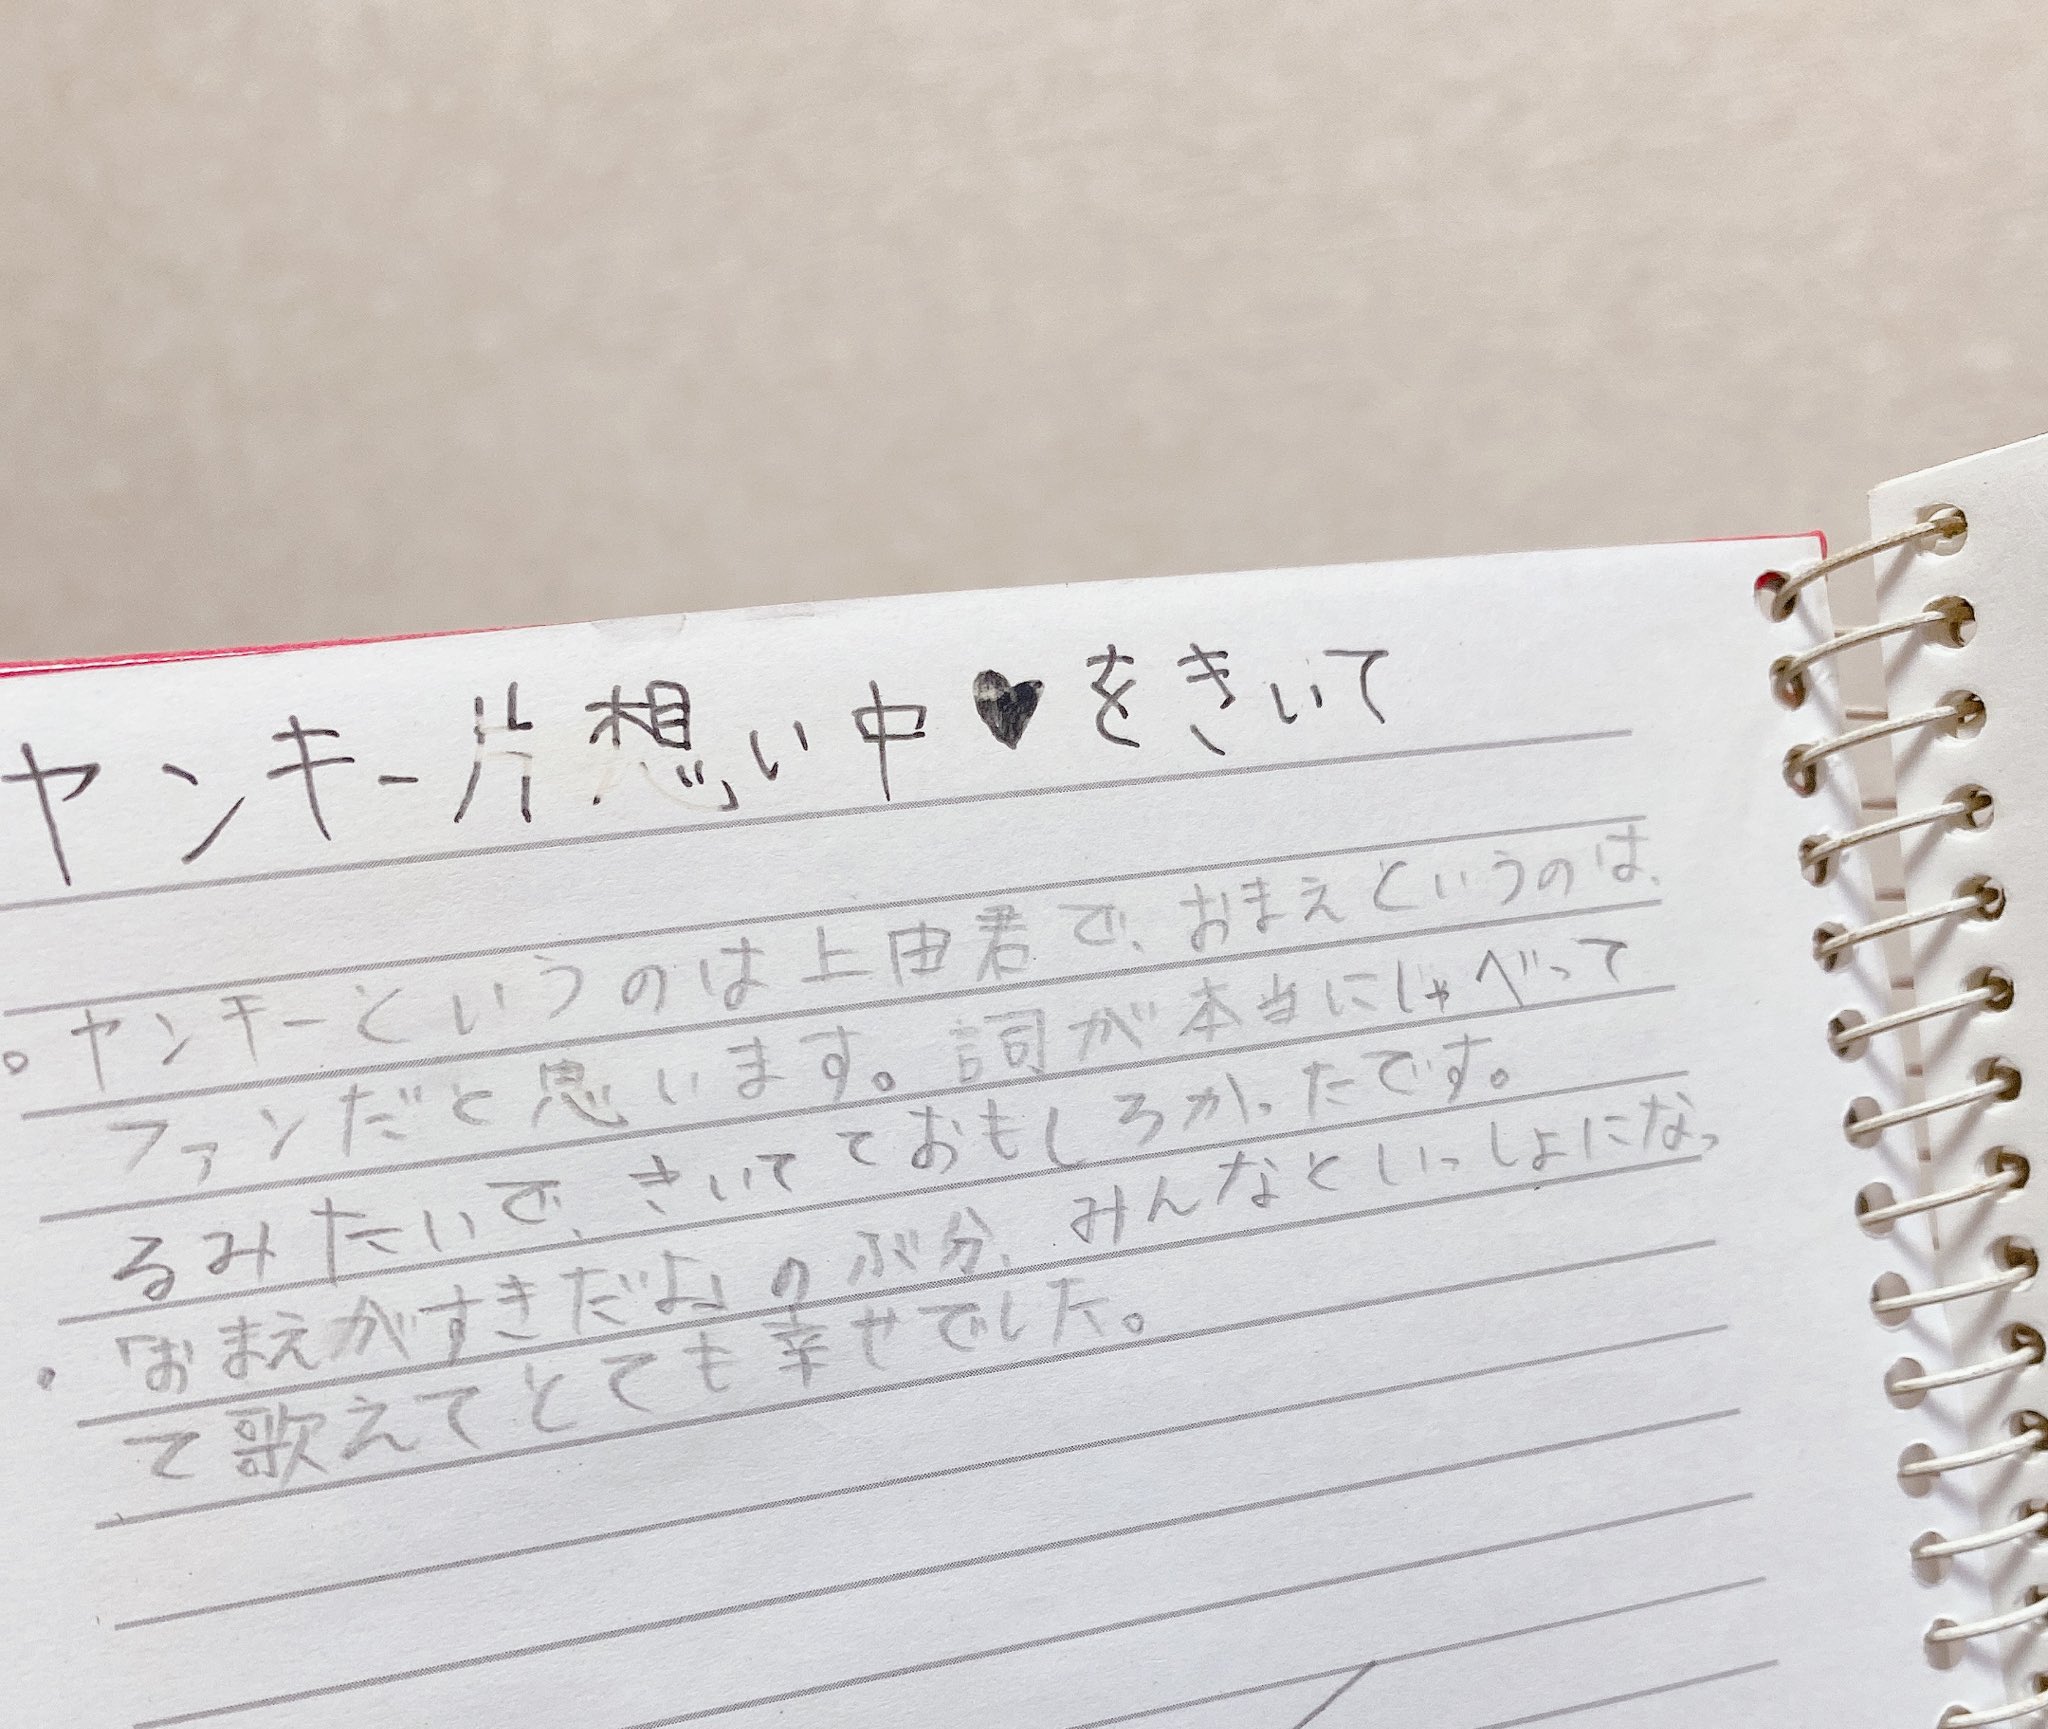 ヤンキー片想い中♥をきいて
。ヤンキーというのは上田君で、おまえというのは、
ファンだと思います。詞が本当にしゃべって
るみたいで、きいてておもしろかったです。
・「おまえがすきだよ」のぶ分、みんなといっしょになっ
て歌えてとても幸せでした。